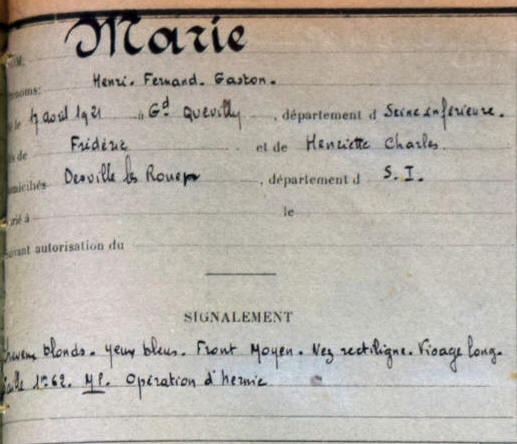 Marie
OM:
énoms: Henri. Fernand. Gaston.
le 17 avril 1921 à Gd Quevilly, département d Seine inférieure.
ls de Frédéric et de Henriette Charles
omiciliés Deville les Rouen, département d S. I.
arié à le
uivant autorisation du
SIGNALEMENT
heveux blonds. yeux bleus. Front Moyen. Nez rectiligne. Visage long.
aille 1m62. MP. Opération d'hernie